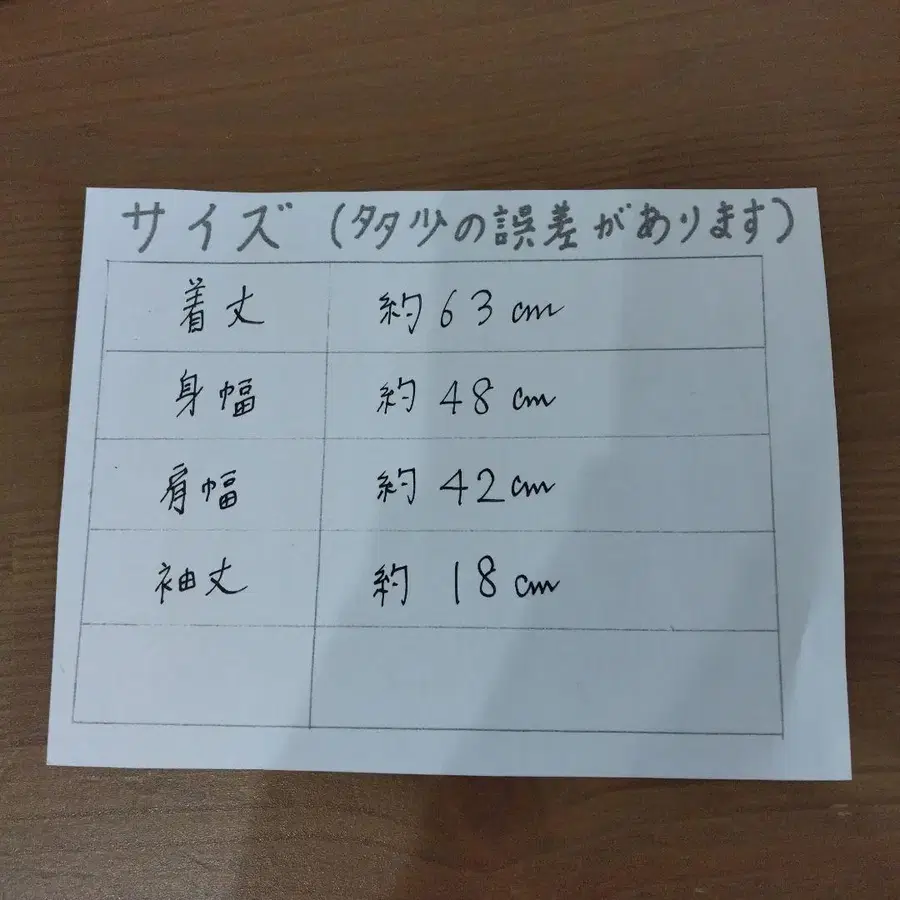 サイズ (多少の誤差があります)
着丈 約63cm
身幅 約48cm
肩幅 約42cm
袖丈 約18cm